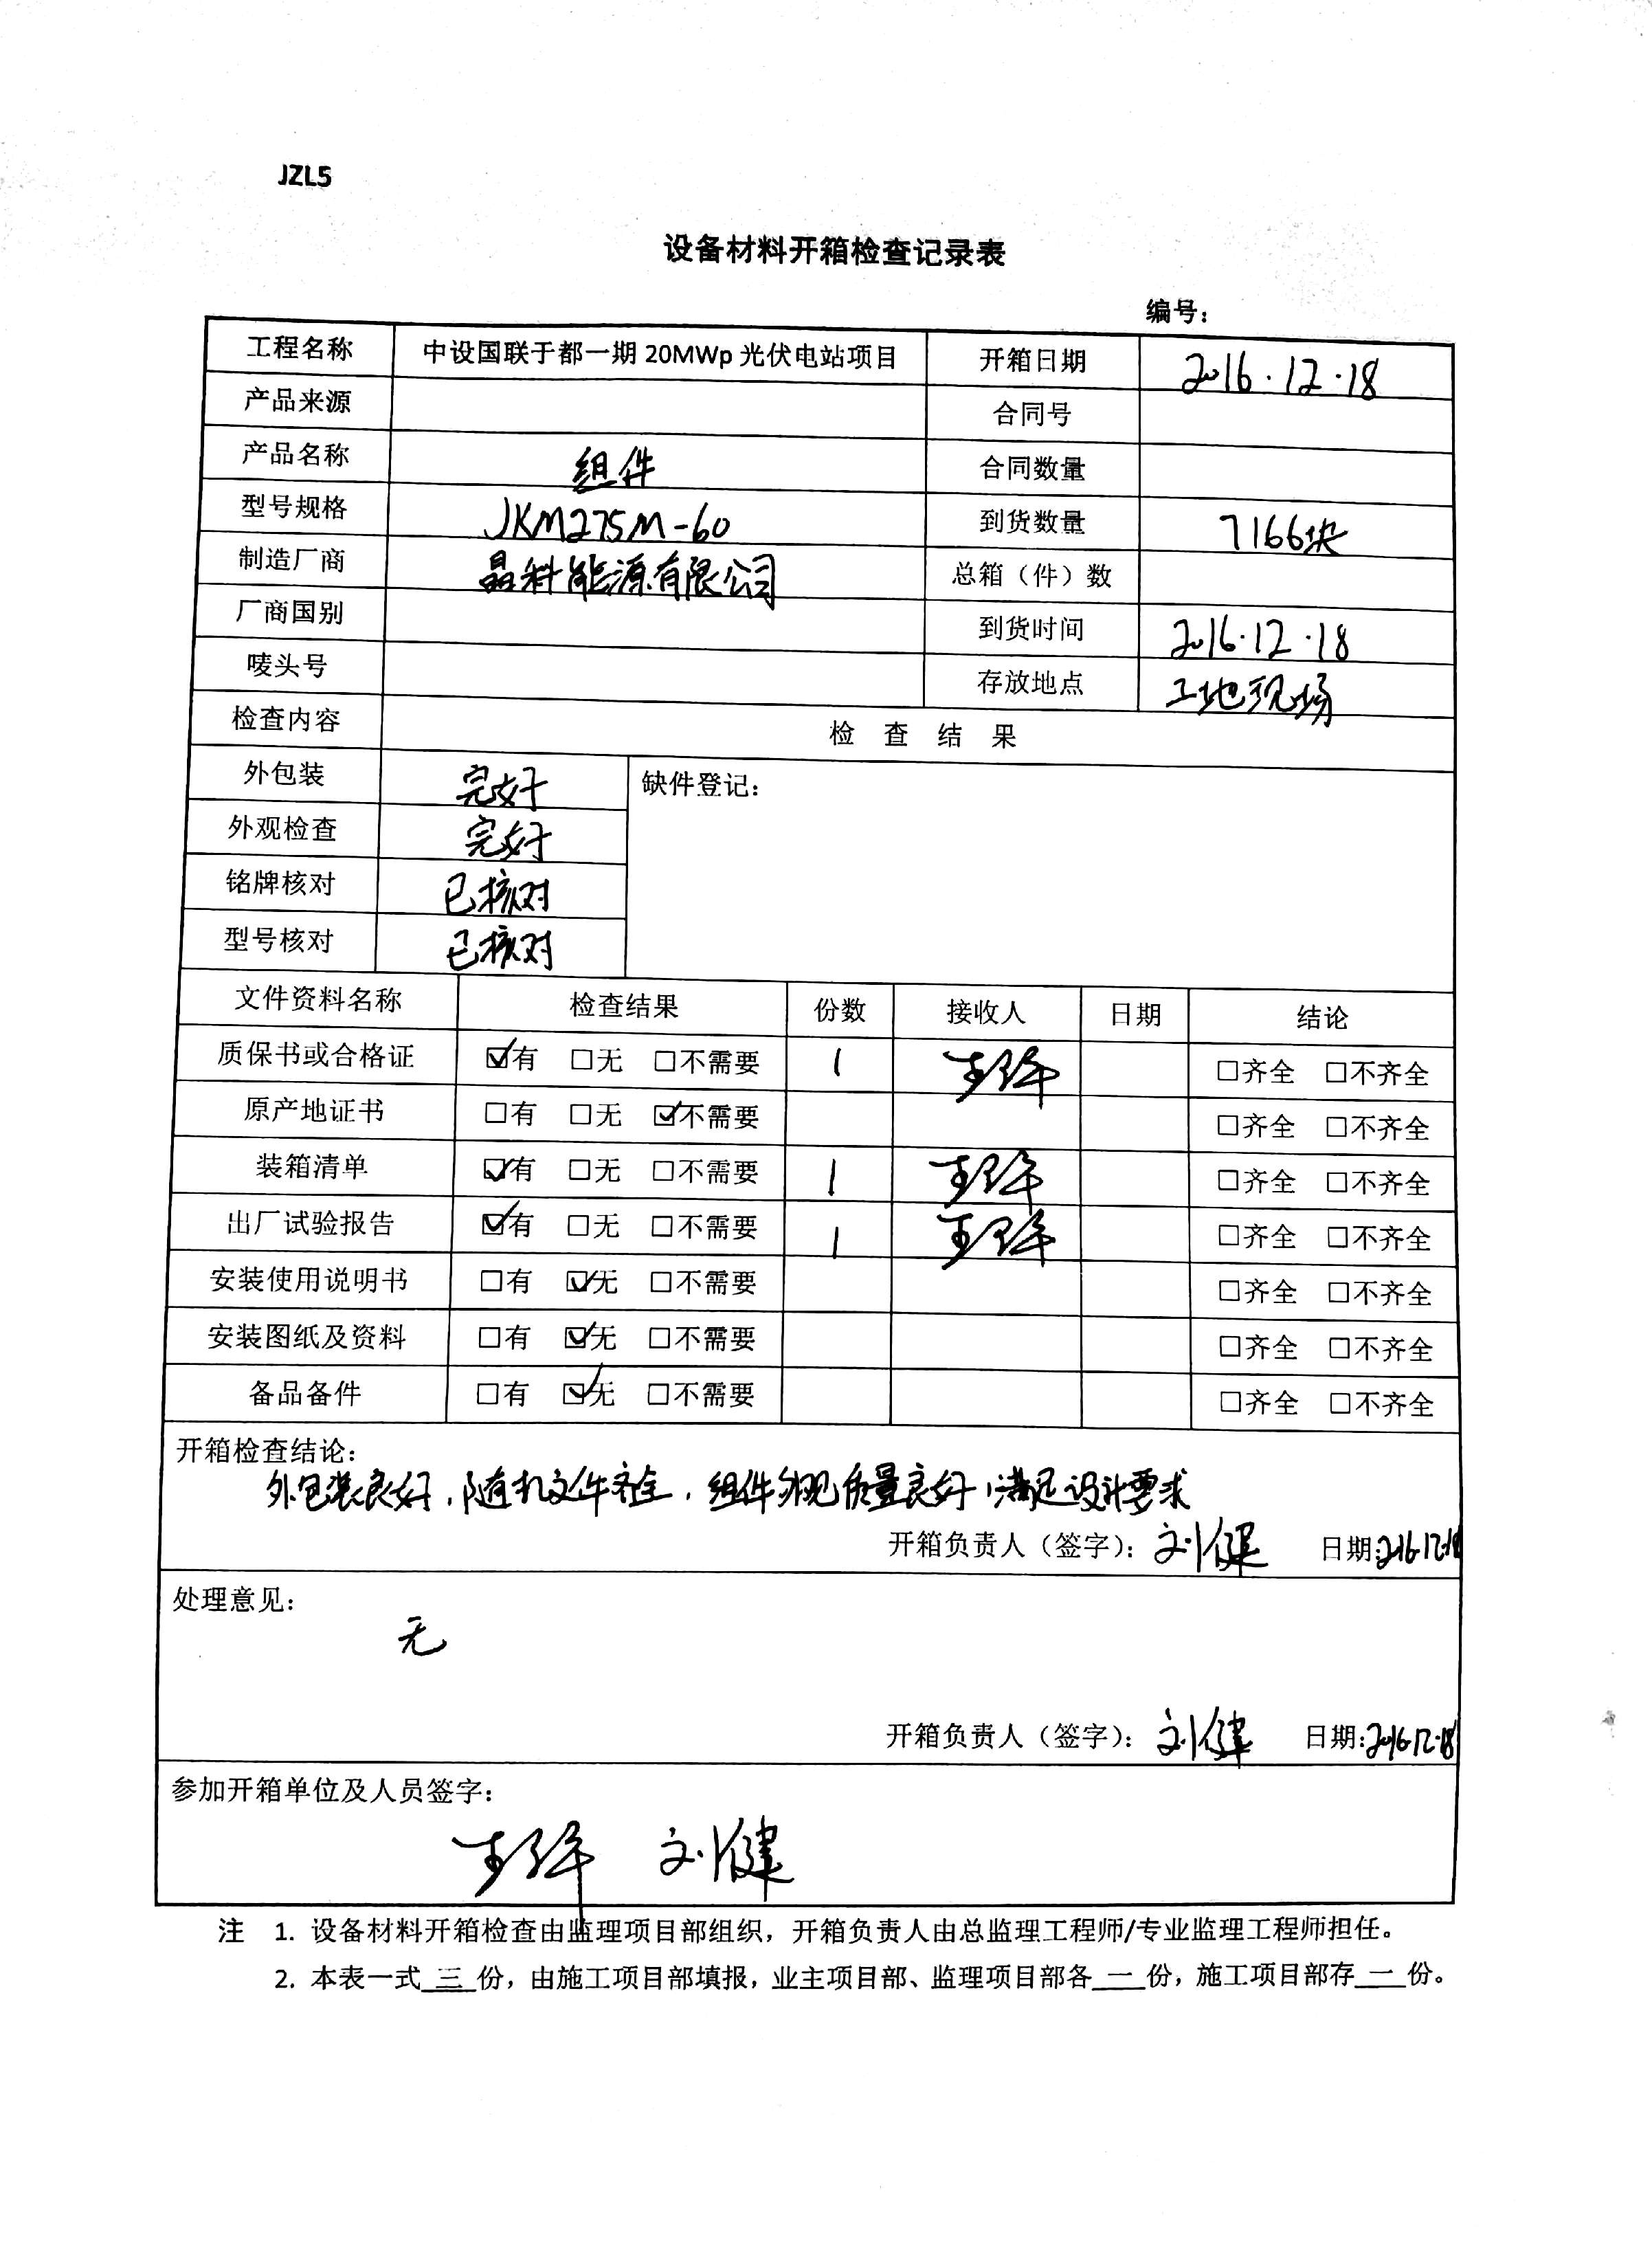 JZL5
设备材料开箱检查记录表
编号：
工程名称 中设国联于都一期 20MWp 光伏电站项目 开箱日期 2016.12.18
产品来源 合同号
产品名称 组件 合同数量
型号规格 JKM275M-60 到货数量 7166块
制造厂商 晶科能源有限公司 总箱（件）数
厂商国别 到货时间 2016.12.18
唛头号 存放地点 工地现场
检查内容 检 查 结 果
外包装 完好 缺件登记：
外观检查 完好
铭牌核对 已核对
型号核对 已核对
文件资料名称 检查结果 份数 接收人 日期 结论
质保书或合格证 ☑有 □无 □不需要 1 □齐全 □不齐全
原产地证书 □有 □无 ☑不需要 □齐全 □不齐全
装箱清单 ☑有 □无 □不需要 1 □齐全 □不齐全
出厂试验报告 ☑有 □无 □不需要 1 □齐全 □不齐全
安装使用说明书 □有 ☑无 □不需要 □齐全 □不齐全
安装图纸及资料 □有 ☑无 □不需要 □齐全 □不齐全
备品备件 □有 ☑无 □不需要 □齐全 □不齐全
开箱检查结论：
外包装良好，随机文件齐全，组件外观质量良好，满足设计要求
开箱负责人（签字）：刘健 日期：2016.12.18
处理意见：
无
开箱负责人（签字）：刘健 日期：2016.12.18
参加开箱单位及人员签字：
刘健
注 1. 设备材料开箱检查由监理项目部组织，开箱负责人由总监理工程师/专业监理工程师担任。
2. 本表一式 三 份，由施工项目部填报，业主项目部、监理项目部各 一 份，施工项目部存 一 份。